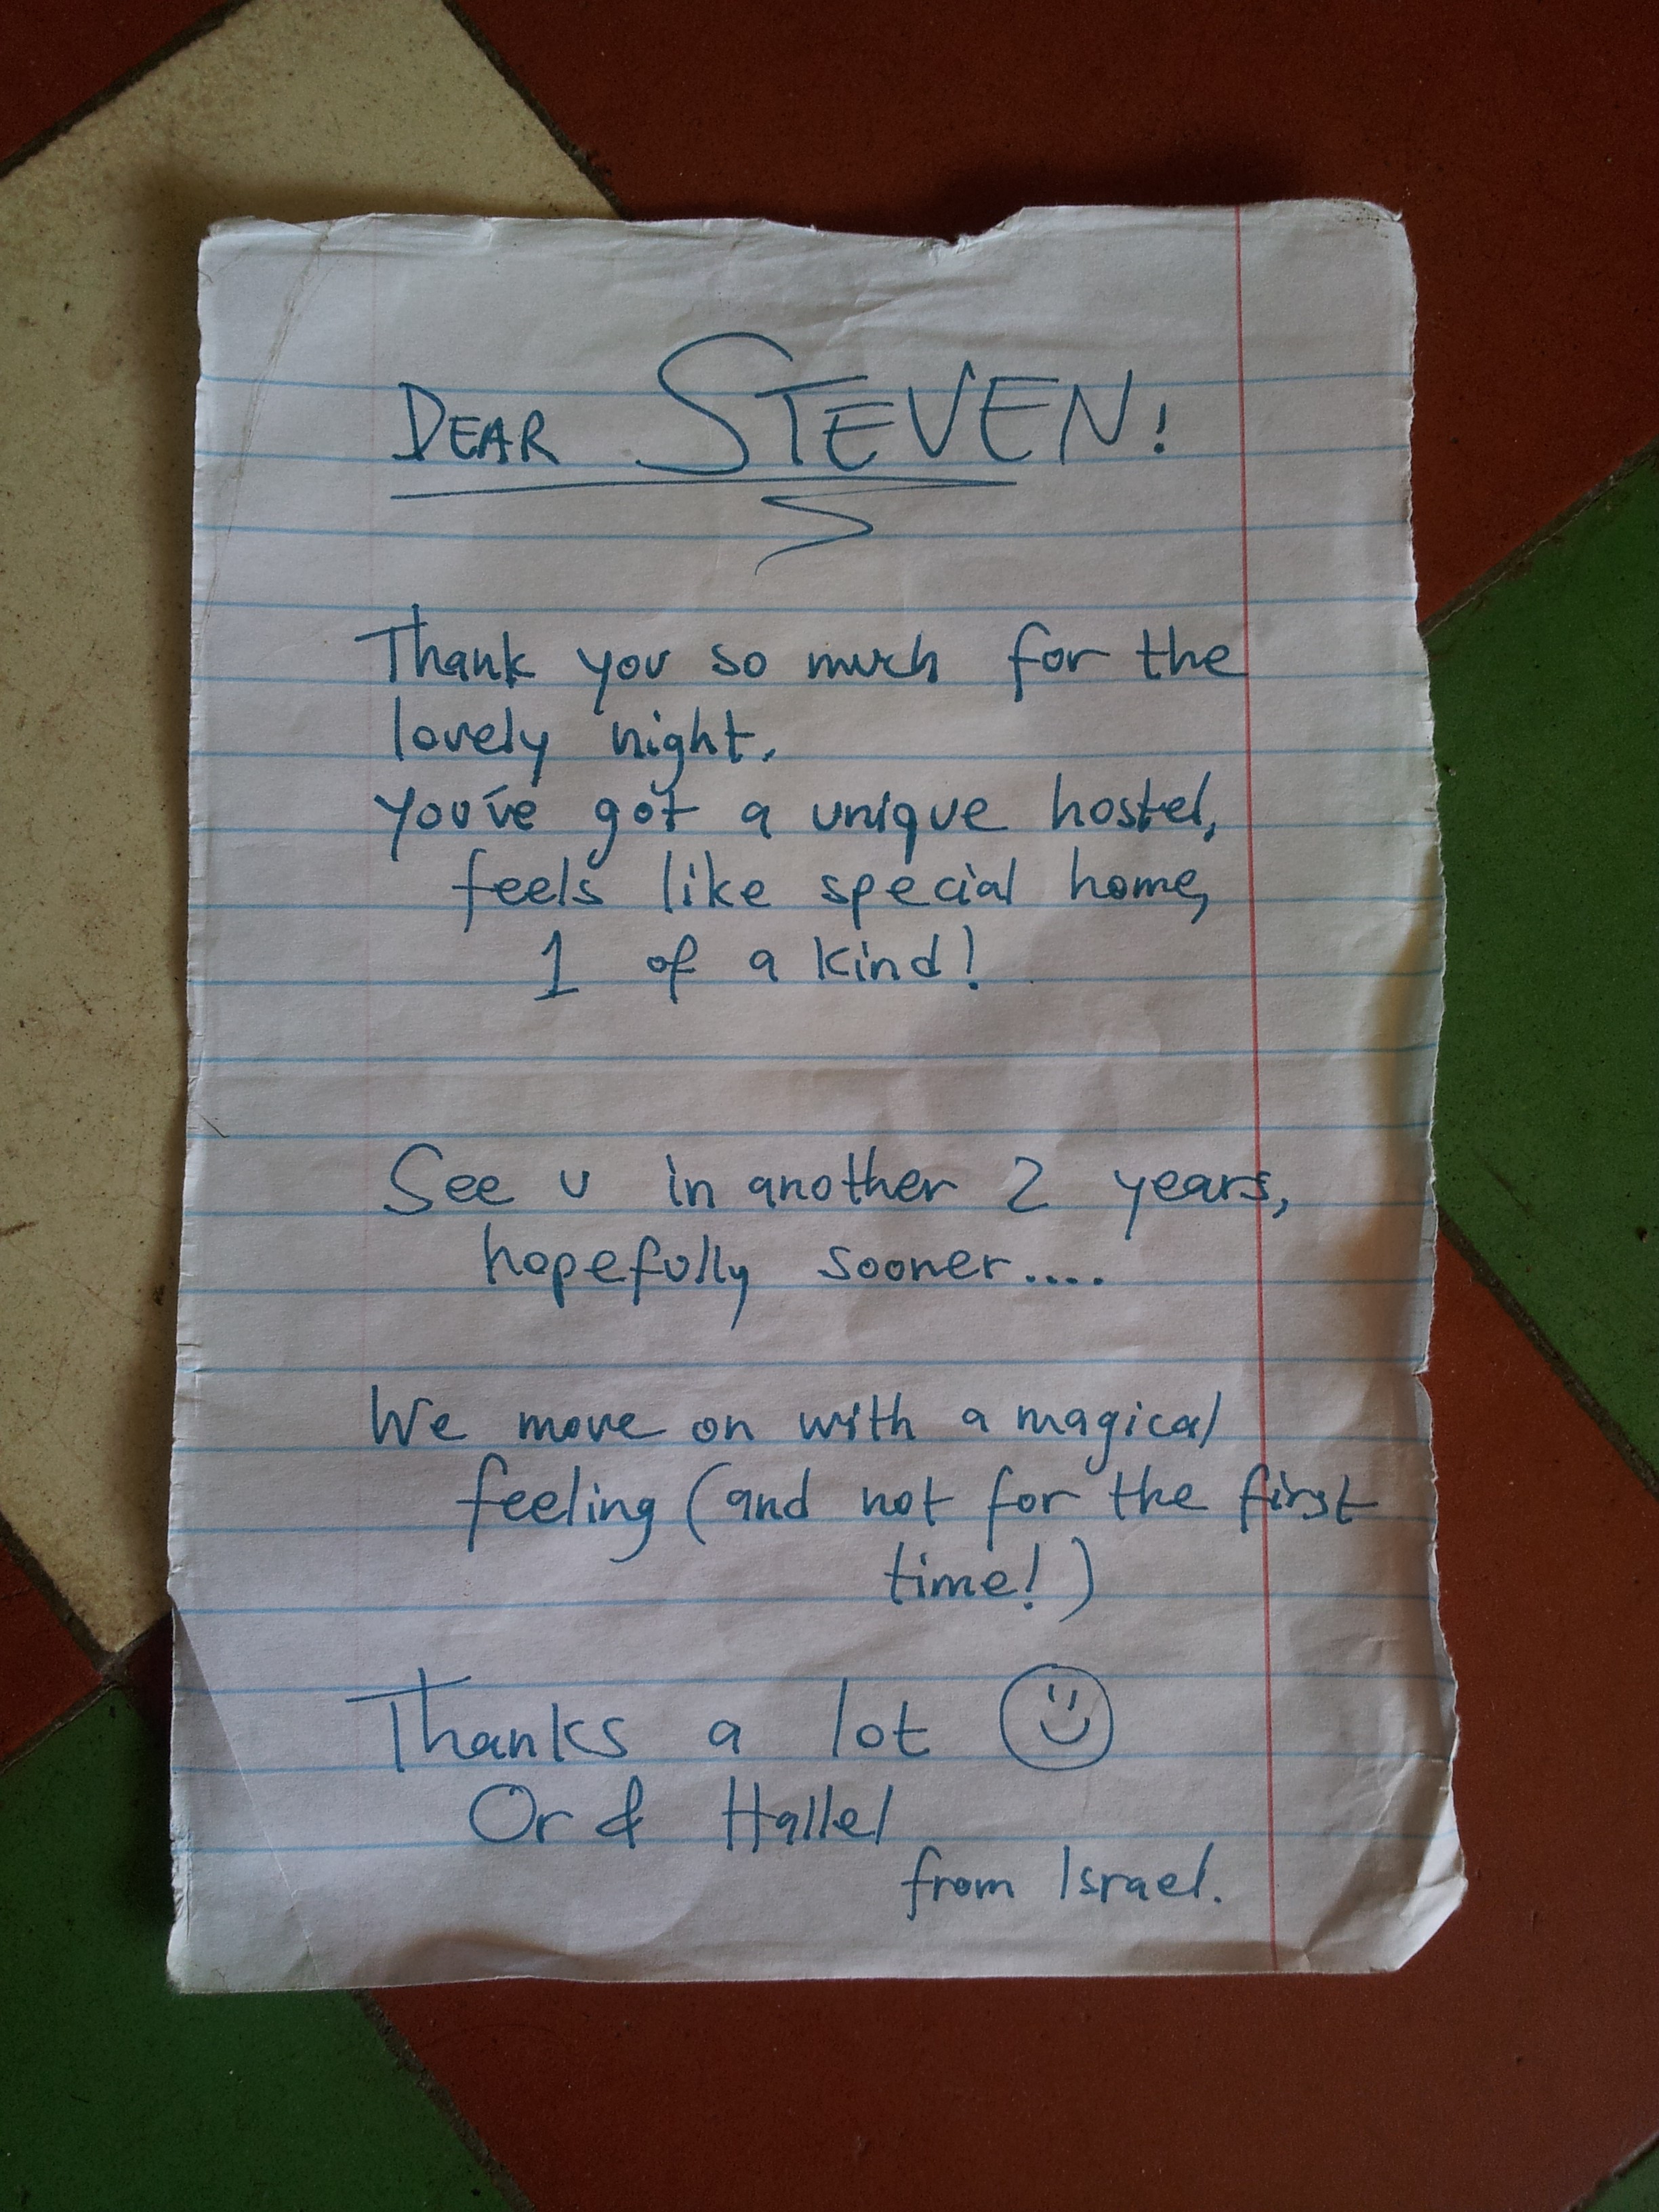 DEAR STEVEN!
Thank you so much for the
lovely night.
You've got a unique hostel,
feels like special home,
1 of a kind!
See u in another 2 years,
hopefully sooner....
We move on with a magical
feeling (and not for the first
time!)
Thanks a lot
Or & Hallel
from Israel.